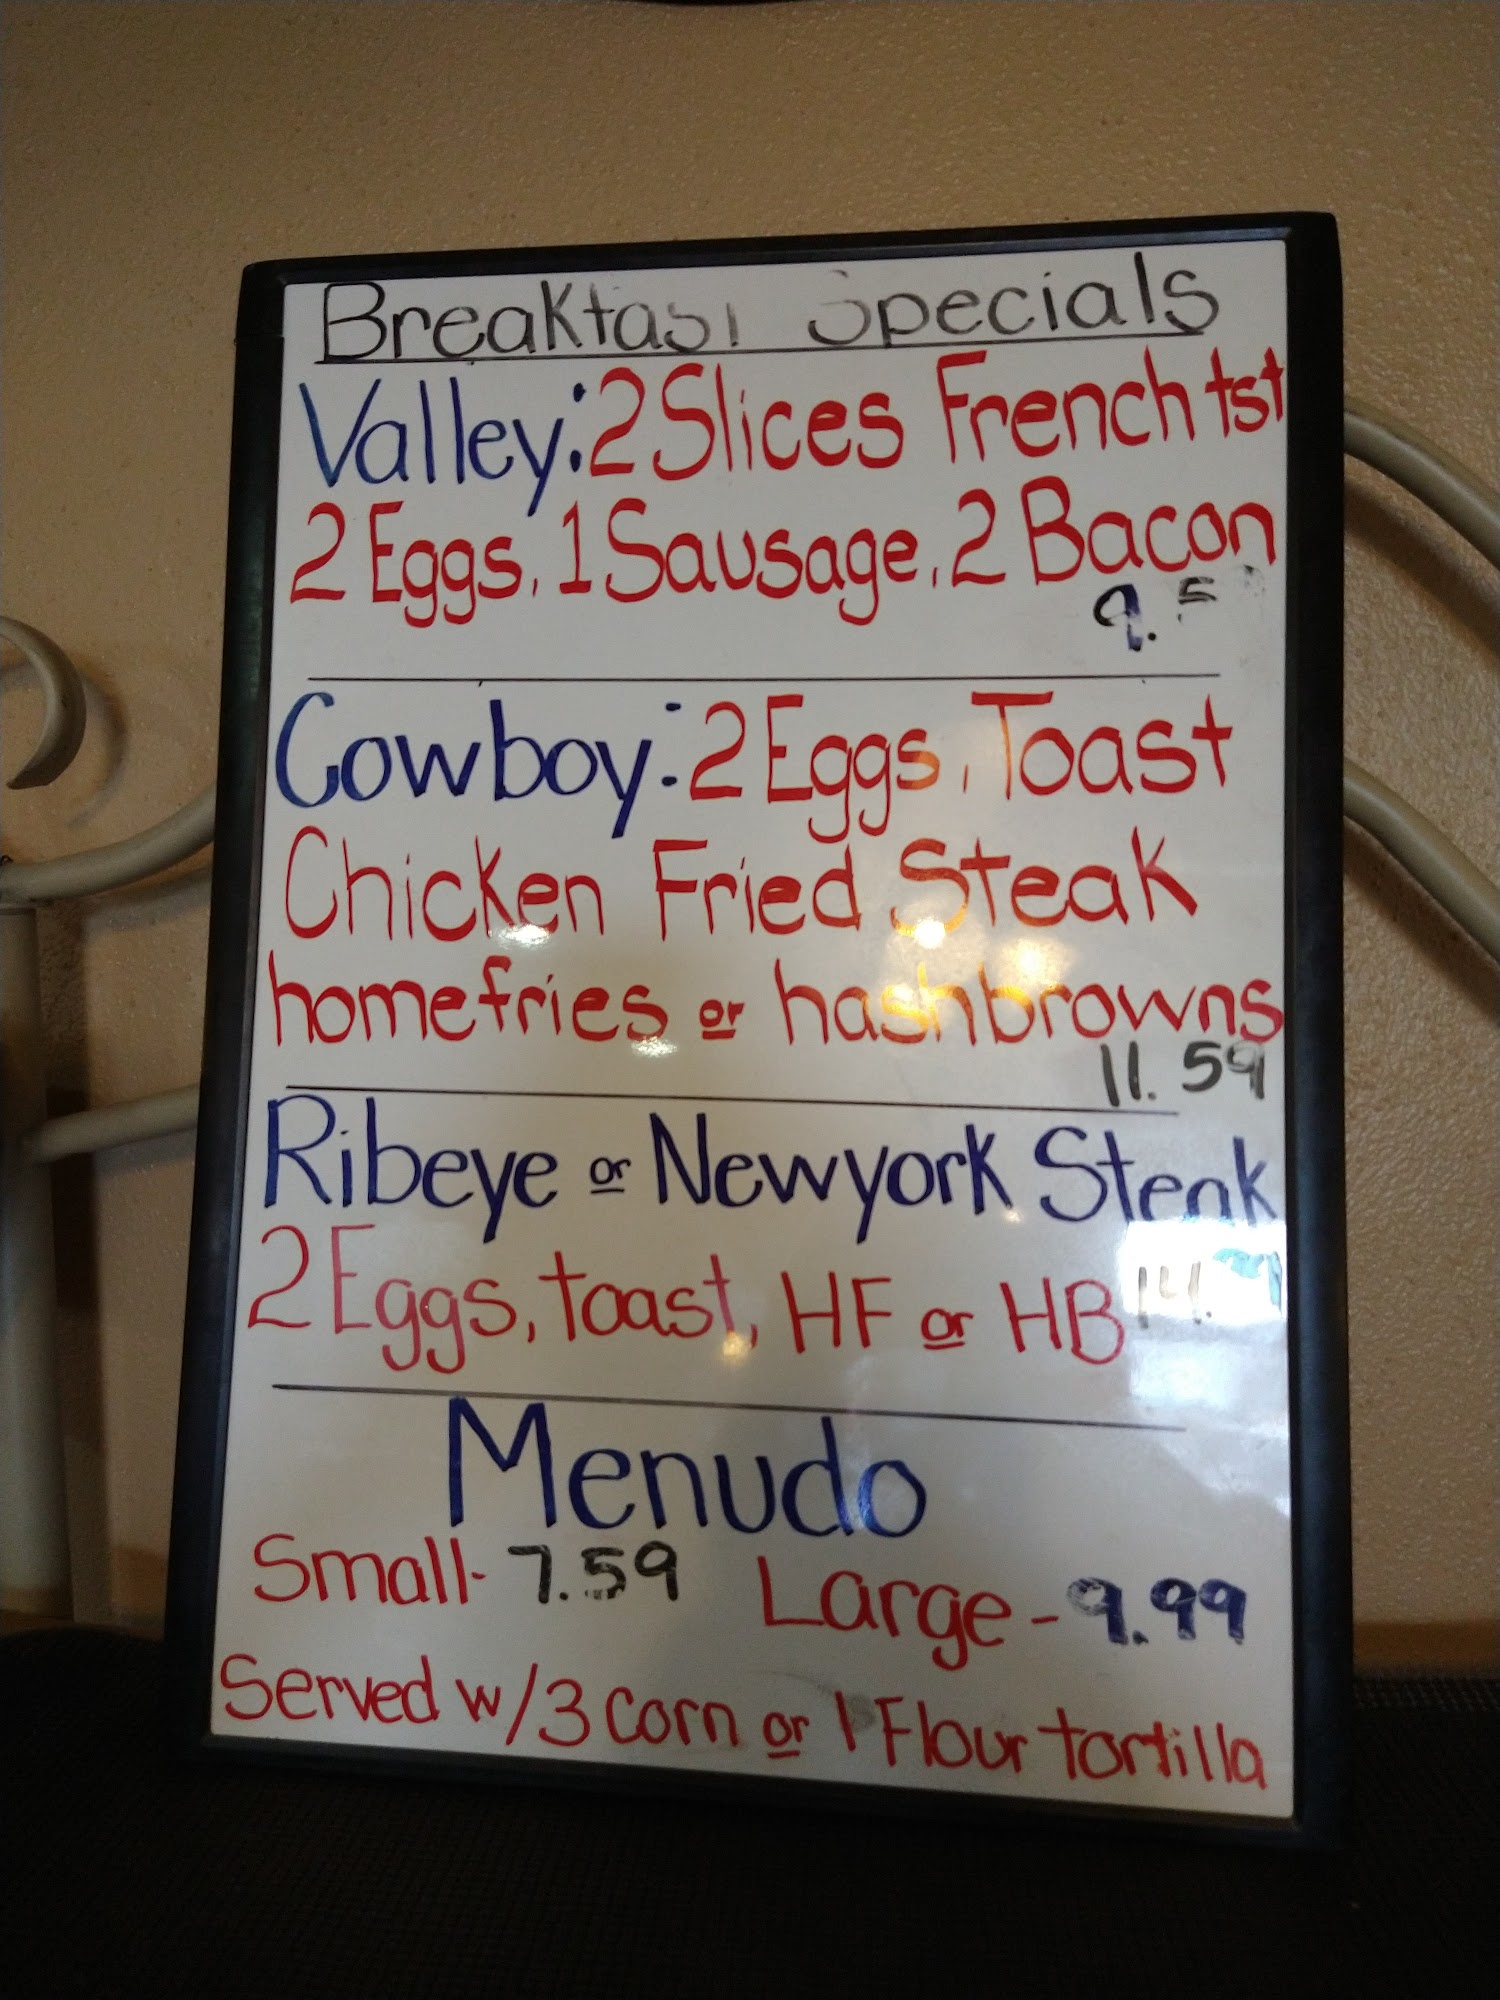 Breakfast Specials
Valley: 2 Slices French tst
2 Eggs, 1 Sausage, 2 Bacon
9.5
Cowboy: 2 Eggs, Toast
Chicken Fried Steak
homefries or hashbrowns
11.59
Ribeye or Newyork Steak
2 Eggs, toast, HF or HB 14.
Menudo
Small- 7.59 Large - 9.99
Served w/3 corn or 1 Flour tortilla